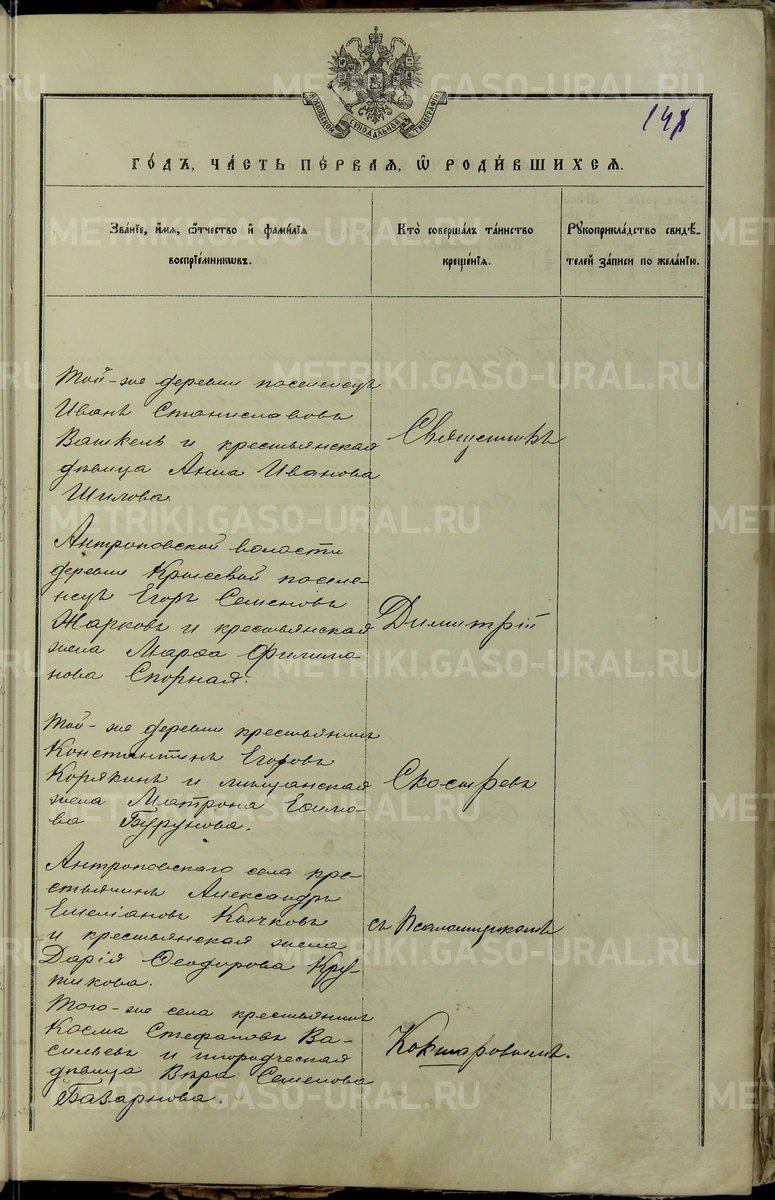 МОСКОВСКОЙ СѴНОДАЛЬНОЙ ТИПОГРАФІИ
ГО́ДЪ, ЧА́СТЬ ПЕ́РВАѦ, Ѡ҆ РОДИ́ВШИХСѦ.
Зва́нїе, и҆́мѧ, ѻ҆́тчество и҆ фами́лїѧ
воспрїе́мникѡвъ.
Кто̀ соверша́лъ та́инство
креще́нїѧ.
Рꙋкоприкла́дство свидѣ́-
телей за́писи по жела́нїю.
Той-же деревни поселенецъ
Иванъ Станиславовъ
Вашкель и крестьянская
дѣвица Анна Иванова
Шилова.
Священникъ
Антроповской волости
деревни Крысевой поселе-
нецъ Егоръ Семеновъ
Жарковъ и крестьянская
жена Марѳа Филимо-
нова Спорная.
Димитрій
Той-же деревни крестьянинъ
Константинъ Егоровъ
Корякинъ и мѣщанская
жена Матрона Ефимо-
ва Бурунова.
Скосыревъ
Антроповскаго села кре-
стьянинъ Александръ
Емеліановъ Кычковъ
и крестьянская жена
Дарія Ѳеодорова Кру-
тикова.
съ Псаломщикомъ
Того-же села крестьянинъ
Косма Стефановъ Ва-
сильевъ и инородческая
дѣвица Вѣра Семенова
Базарнова.
Кокшаровымъ.
METRIKI.GASO-URAL.RU